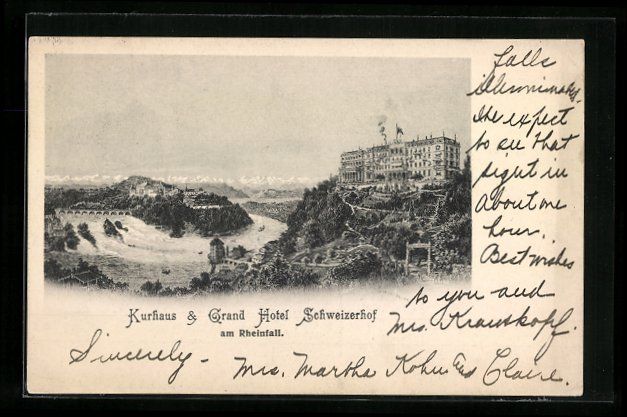 falls
illuminated.
We expect
to see that
sight in
about one
hour.
Best wishes
to you and
Mrs. Krauskopf.
Kurhaus & Grand Hotel Schweizerhof
am Rheinfall.
Sincerely -
Mrs. Martha Kohn & Claire.